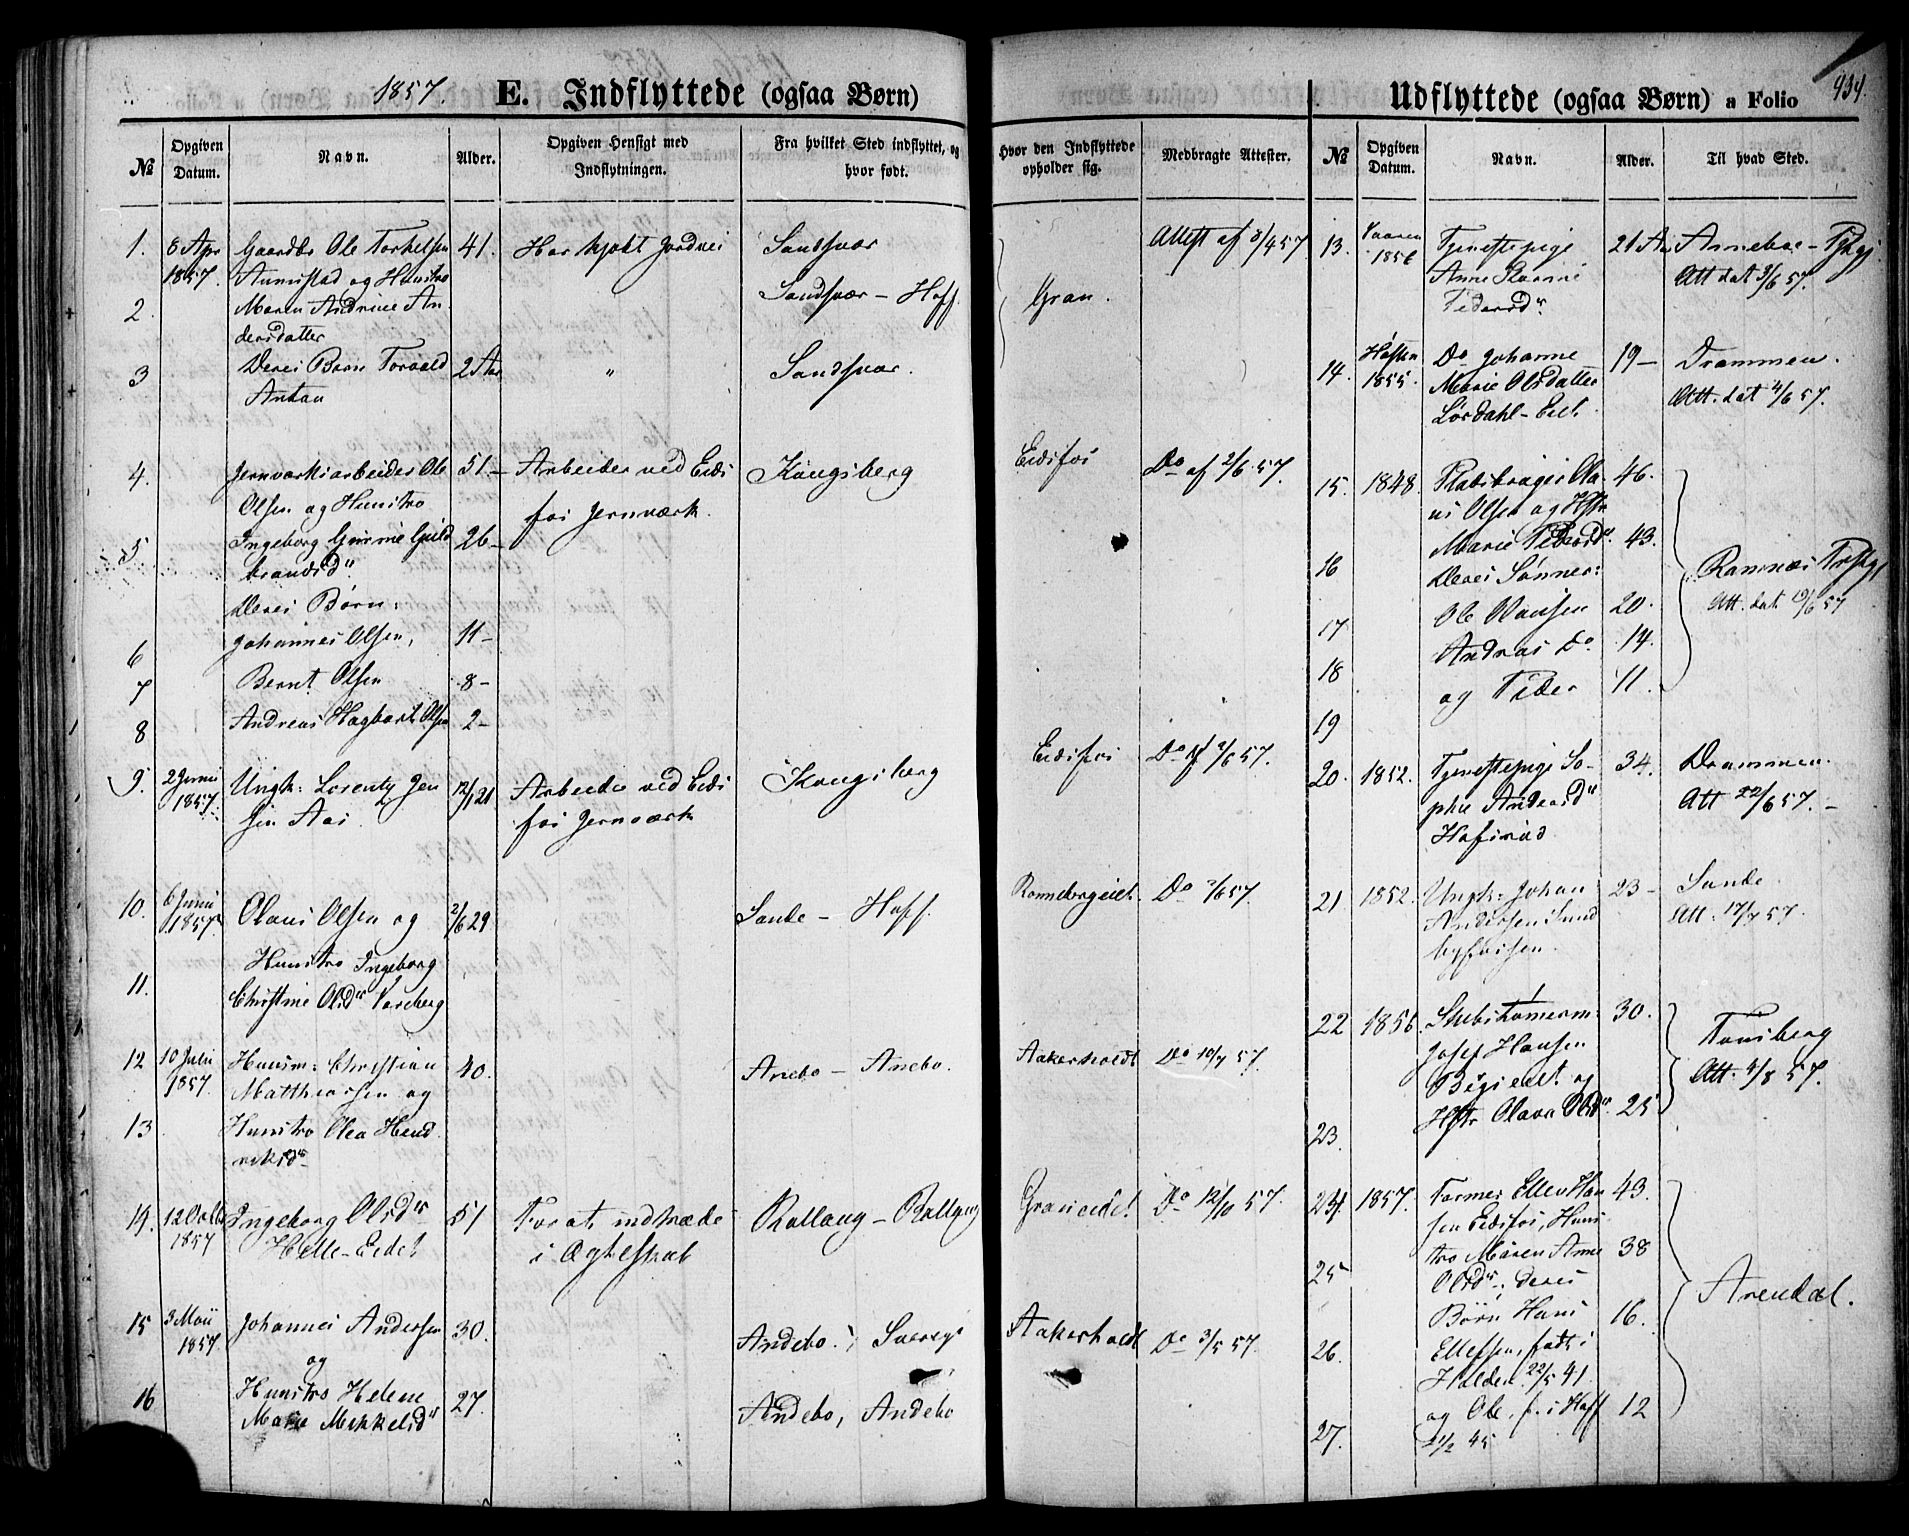 1857. E. Indflyttede (ogsaa Børn)
№ Opgiven Datum. Navn. Alder. Opgiven Hensigt med Indflytningen. Fra hvilket Sted indflyttet, og hvor født.
1. 8 Apr 1857. Gaardbr Ole Torkelsen 41. Har kjøbt Jordvei Sandsvær
og Hustro
2. Maren Andrine An- " Sandsvær – Hoff.
dersdatter
3 Deres Barn Torvald 2 Aar " Sandsvær.
Anton
4. Jernværksarbeider Ole 51 – Arbeider ved Eids Kongsberg
Olsen og Hustro fos Jernværk.
5 Ingeborg Guld 26 –
brandsd.
Deres Børn:
6 Johannes Olsen, 11 –
7 Bernt Olsen 8 –
8 Andreas Hagbart Olsen 2 –
9. 2 Juni 1857. Ungk: Lorentz Jen 12/1 21 Arbeide ved Eids Kongsberg
sen Aas. fos Jernværk
10. 6 Juni 1857. Olaus Olsen og 2/6 29 Sande – Hoff.
Hustro Ingeborg
11. Christine Olsd
12 10 Juli 1857. Husm: Christian 40. Anebo – Anebo.
Matthiassen og
13 Hustro Olea Hend
riksd
14. 12 Octb 1857 Ingeborg Olsd 51 For at indtræde
Helle-Eidet i Ægteskab
15 3 Mai 1857. Johannes Andersen 30. Andebo. ; Sverige
og
16 Hustro Helene 27. Andebo, Andebo
Marie Mikkelsd
Udflyttede (ogsaa Børn) a Folio 434.
Hvor den Indflyttede opholder sig. Medbragte Attester. № Opgiven Datum. Navn. Alder. Til hvad Sted.
Gran. Attest af 8/4 57
Eidsfos Do af 2/6 57.
Eidsfos Do af 2/6 57.
Do 2/6 57.
Aakerholdt Do 10/7 57.
Graneidet Do 12/10 57.
Aakerholdt Do 3/5 57.
13. Vaaren 1856 Tjenestepige 21 Aar
Anne Att dat 3/6 57.
Pedersd.
14. Høsten 1855. Do Johanne 19 – Drammen.
Marie Olsdatter Att. dat 4/6 57.
15. 1848. Pladsbruger Ola 46.
us Olsen og Hstr
16 Marie Pedersd. 43. Ramnæs
Deres Sønner: Att. dat 19/6 57
17 Ole Olausen 20.
18 Andreas Do 14.
19 og Peder 11.
20. 1852. Tjenestepige So- 34. Drammen.
phie Andersd Att 22/6 57. –
21 1852. Ungk: Johan 23 – Sande
Andersen Sund Att. 17/7 57.
byfossen.
22 1856. Skibstømerm: 30. Tønsberg
Josef Hansen Att. 4/8 57.
og
23. Hstr Olava Olsd. 25
24. 1857. Former Ellev Han 43.
sen Eidsfos, Hus
25 tro Maren Anne 38
Olsd; deres Arendal.
26. Børn Hans 16.
Ellefsen, født i
Holden 22/5 41.
27. og Ole, f. i Hoff 12
21/2 45